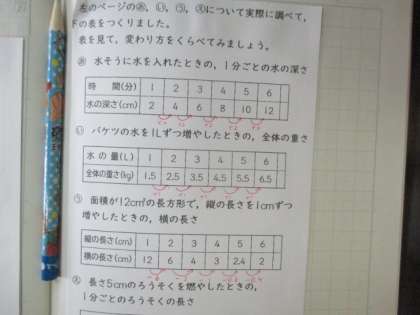 左のページのあ, い, う, えについて実際に調べて,
下の表をつくりました。
表を見て, 変わり方をくらべてみましょう。
あ 水そうに水を入れたときの, 1分ごとの水の深さ
時 間(分) 1 2 3 4 5 6
水の深さ(cm) 2 4 6 8 10 12
い バケツの水を1Lずつ増やしたときの, 全体の重さ
水の量(L) 1 2 3 4 5 6
全体の重さ(kg) 1.5 2.5 3.5 4.5 5.5 6.5
う 面積が12cm²の長方形で, 縦の長さを1cmずつ
増やしたときの, 横の長さ
縦の長さ(cm) 1 2 3 4 5 6
横の長さ(cm) 12 6 4 3 2.4 2
え 長さ5cmのろうそくを燃やしたときの,
1分ごとのろうそくの長さ